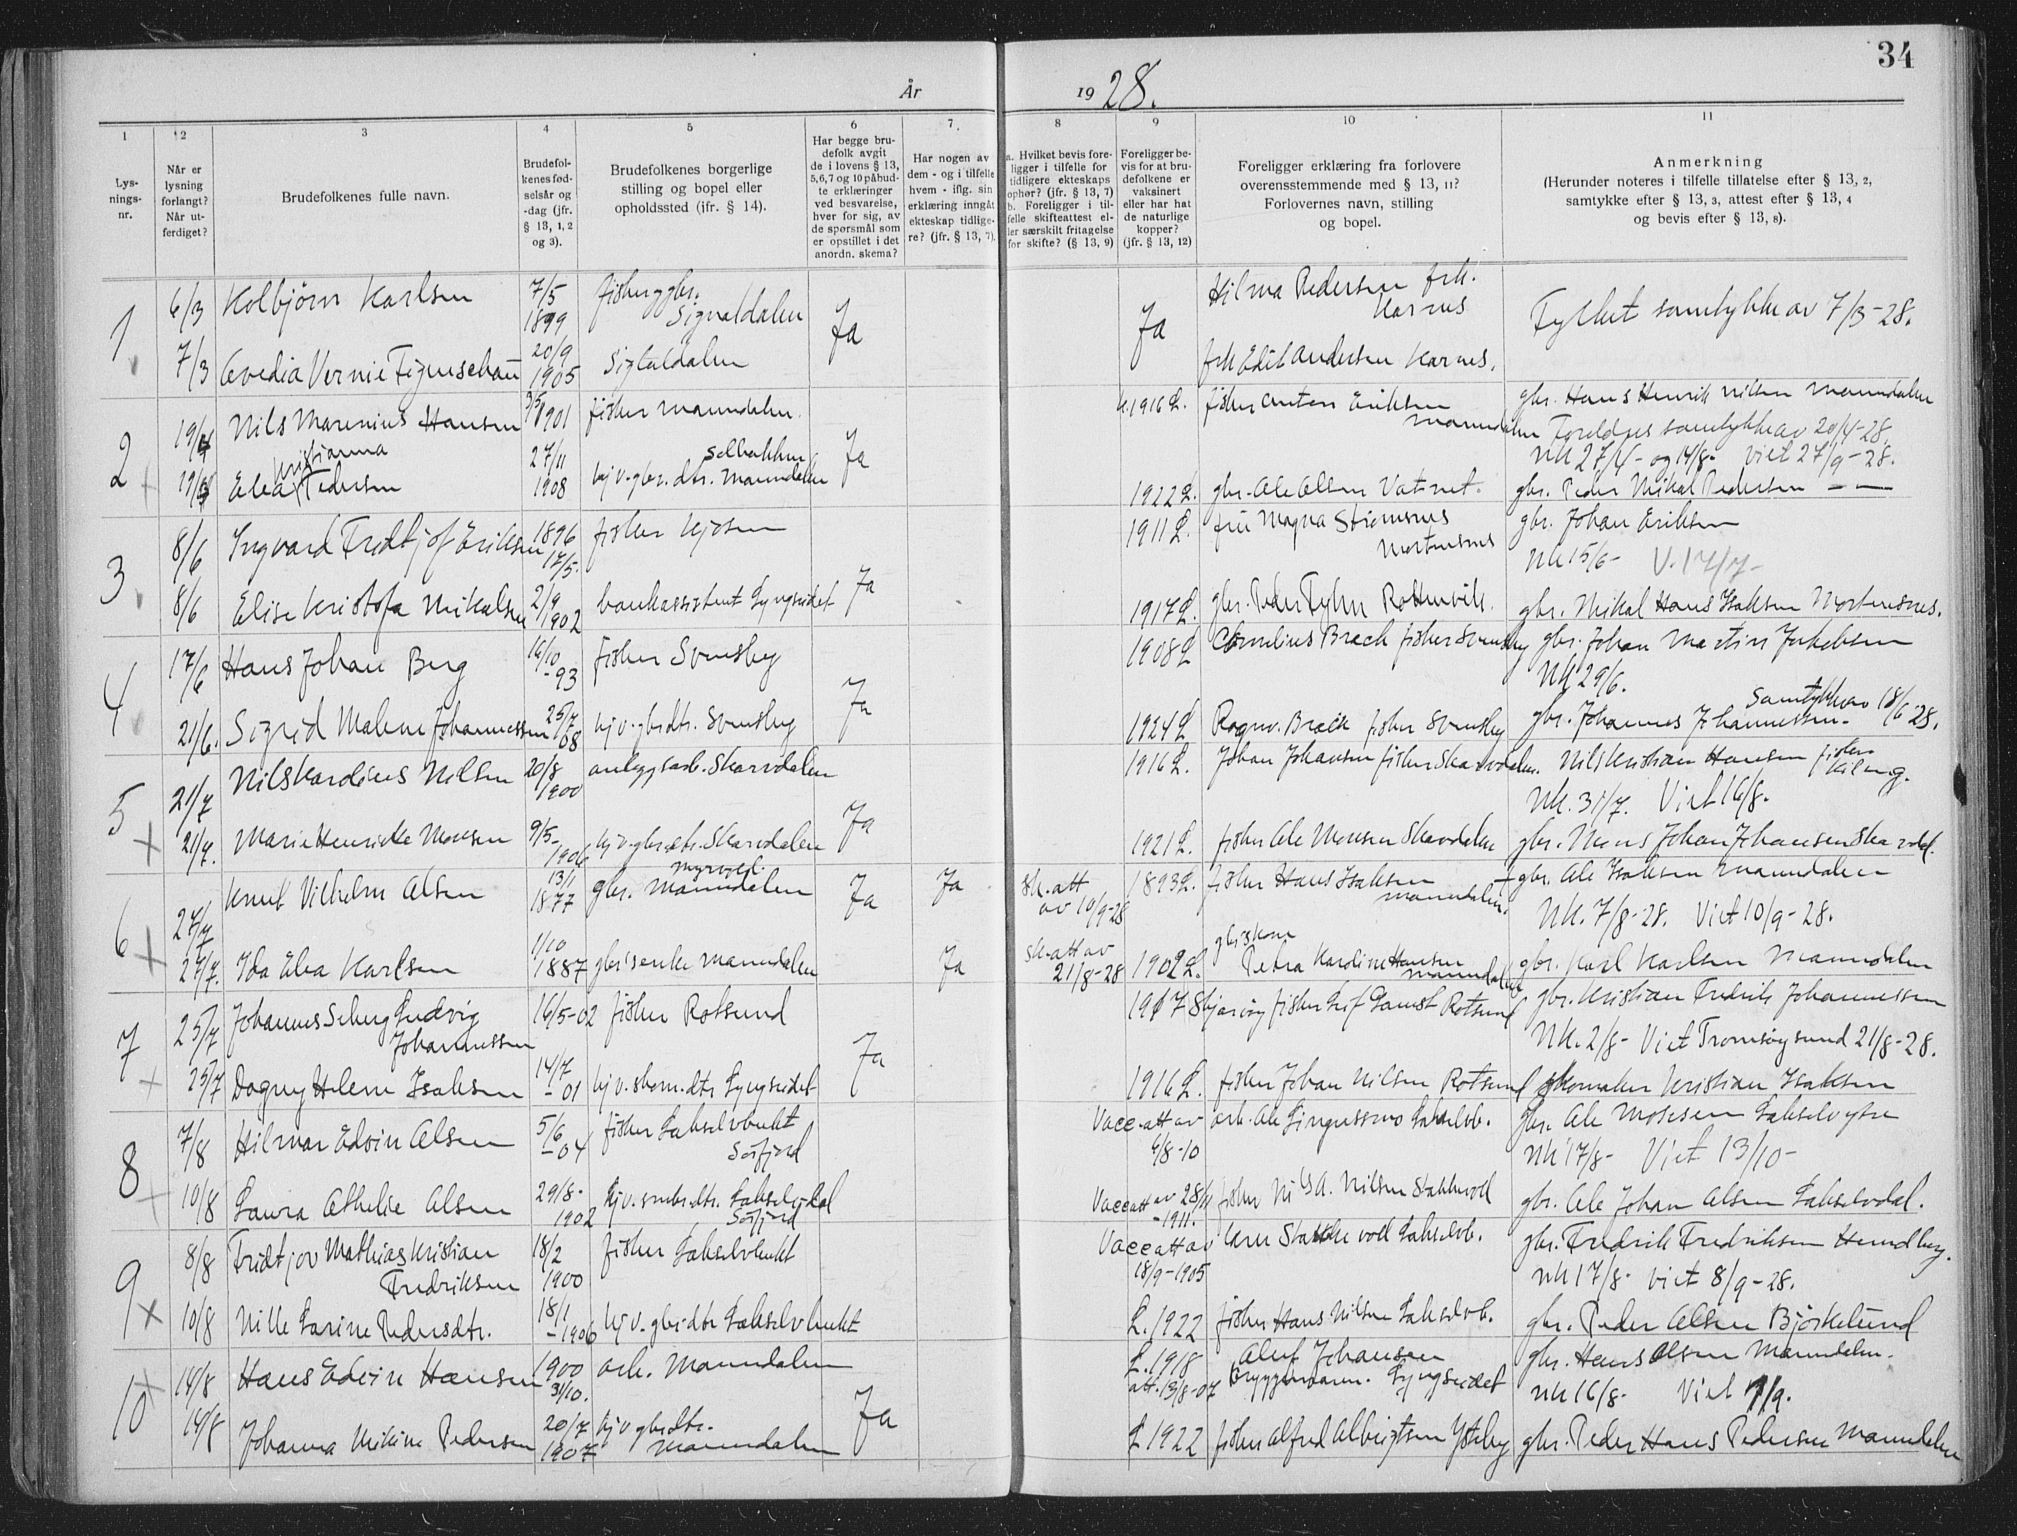 34
År 1928.
1 2 3 4 5 6 7. 8 9 10 11
Lys-
nings-
nr.
Når er
lysning
forlangt?
Når ut-
ferdiget?
Brudefolkenes fulle navn.
Brudefol-
kenes fød-
selsår og
-dag (jfr.
§ 13, 1, 2
og 3).
Brudefolkenes borgerlige
stilling og bopel eller
opholdssted (jfr. § 14).
Har begge bru-
defolk avgit
de i lovens § 13,
5,6,7 og 10 påbud-
te erklæringer
ved besvarelse,
hver for sig, av
de spørsmål som
er opstillet i det
anordn. skema?
Har nogen av
dem - og i tilfelle
hvem - iflg. sin
erklæring inngåt
ekteskap tidlige-
re? (jfr. § 13, 7).
a. Hvilket bevis fore-
ligger i tilfelle for
tidligere ekteskaps
ophør? (jfr. § 13, 7)
b. Foreligger i til-
felle skifteattest el-
ler særskilt fritagelse
for skifte? (§ 13, 9)
Foreligger be-
vis for at bru-
defolkene er
vaksinert
eller har hat
de naturlige
kopper?
(jfr. § 13, 12)
Foreligger erklæring fra forlovere
overensstemmende med § 13, 11?
Forlovernes navn, stilling
og bopel.
Anmerkning
(Herunder noteres i tilfelle tillatelse efter § 13, 2,
samtykke efter § 13, 3, attest efter § 13, 4
og bevis efter § 13, 8).
1 6/3 Kolbjörn Karlsen 7/5 1899 fisker og gbr. Signaldalen Ja Ja Hilma Pedersen frk. Karnes
Fylket samtykke av 7/3-28.
7/3 Vernie Figenschau 20/9 1905 Signaldalen frk Edit Andersen Karnes.
2 19/4 Nils Marenius Hansen 1901 fisker Manndalen. Ja 1916 L. fisker Anton Eriksen Manndalen gbr. Hans Henrik Nilsen Manndalen
Foreldres samtykke av 20/4-28.
NK 27/4- og 14/8- viet 27/9-28.
Kristianna
Elea Pedersen 27/11 1908 hjv. gbr. dtr. Manndalen Solbakken 1922 L. gbr. Ole Olsen Vatnet. gbr. Peder Mikal Pedersen — —
3 8/6 Ingvard Fredtjof Eriksen 1896 17/5. fisker Kjosen 1911 L. fru Magna Strømsnes Mortensnes gbr. Johan Eriksen
NK 15/6- V. 17/7-
8/6 Elise Kristofa Mikalsen 2/9 1902 bankassistent Lyngseidet Ja 1917 L. gbr. Peder Fyhn Rottenvik. gbr. Mikal Hans Isaksen Mortensnes.
4 17/6 Hans Johan Berg 16/10 -93 fisker Svensby Ja 1908 L Cornelius Bræck fisker Svensby gbr. Johan Martin Jakobsen
NK 29/6.
21/6. Sigrid Malene Johannessen 25/7 08 hjv. gbr.dtr. Svensby 1924 L Ragnv. Bræck fisker Svensby gbr. Johannes Johannessen. Samtykke av 18/6-28.
5 21/7 Nils Kardius Nilsen 20/8 1900 anleggsarb. Skarvdalen 1916 L. Johan Johansen fisker Skarvdalen. Nils Kristian Hansen fisker
NK. 31/7. Viet 16/8.
21/7. Marie Henrikke Monsen 9/5- 1906 hjv. gbr. dtr. Skarvdalen Ja 1921 L. fisker Ole Monsen Skarvdalen gbr. Mons Johan Johansen Skarvdal.
6 27/7 Knut Vilhelm Olsen 13/1 1877 gbr. Manndalen Myrvold. Ja Ja sk.att av 10/9-28 1893 L. fisker Hans Isaksen Manndalen. gbr. Ole Isaksen Manndalen
NK. 7/8-28. Viet 10/9-28.
27/7. Ida Elea Karlsen 1/10 1887 gbr's enke Manndalen Ja sk.att av 21/8-28 1902 L. gbrskone Petra Kardine Hansen Manndalen gbr. Karl Karlsen Manndalen
7 25/7 Johannes Ludvig Johannessen 16/5-02 fisker Rotsund Ja 1917 Skjærvøy fisker Leif Rotsund gbr. Kristian Fredrik Johannessen
NK. 2/8- Viet Tromsøysund 21/8-28.
25/7 Dagny Helene Isaksen 14/7 -01 hjv. skom. dtr. Lyngseidet 1916 L. fisker Johan Nilsen Rotsund skomaker Kristian Isaksen
8 7/8 Hilmar Edvin Olsen 5/6 -04 fisker Lakselvbukt Sørfjord Vacc. att av 6/8-10 arb. Ole Lakselvb. gbr. Ole Mosesen
NK 17/8- Viet 13/10-
10/8 Laura Athelie Olsen 29/8- 1902 hjv. Lakselvdal Sørfjord Vacc att av 28/11 -1911. fisker Nils A. Nilsen Stakkevoll gbr. Ole Johan Olsen Lakselvdal.
9 8/8 Fridtjov Mathias Kristian Fredriksen 18/2 1900 fisker Lakselvbukt Vacc att av 18/9-1905 Stakkevoll Lakselvb. gbr. Fredrik Fredriksen Hundberg.
NK 17/8- viet 8/9-28.
10/8 Nille Larine Pedersdtr. 18/1 -1906 hjv. gbr.dtr Lakselvbukt L. 1922 fisker Hans Nilsen Lakselvb. gbr. Peder Olsen Bjørkelund
10 14/8 Hans Edvin Hansen 1900 31/10. arb. Manndalen Ja L. 1918 att. 13/8-07 Oluf Johansen Lyngseidet gbr. Hans Olsen Manndalen.
NK 16/8- Viet 7/9.
14/8 Johanna Nikine Pedersen 20/7 1907 hjv gbrdtr. Manndalen L 1922 fisker Alfred Albrigtsen Ytteby gbr. Peder Hans Pedersen Manndalen